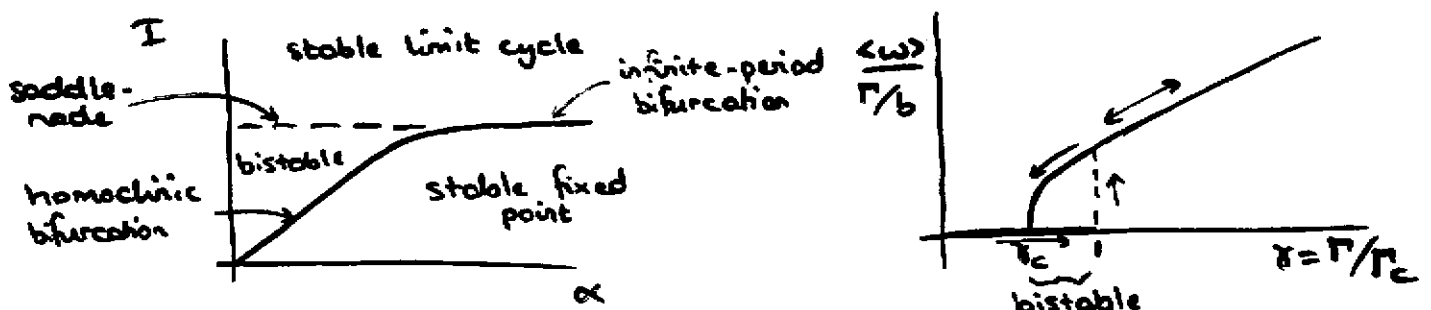 I
stable limit cycle
saddle-
node
infinite-period
bifurcation
bistable
homoclinic
bifurcation
stable fixed
point
α
<ω>
Γ/b
γc
1
γ = Γ/Γc
bistable